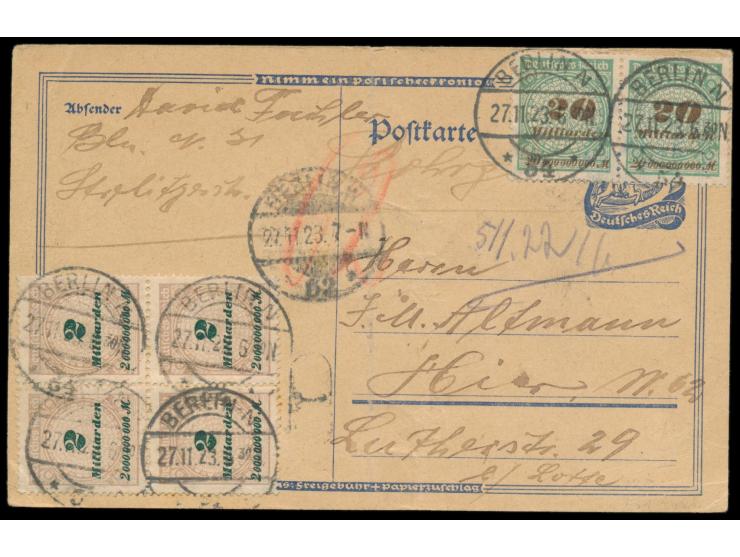 Nimm ein Postscheckkonto
Absender David
Bln. N. 31
Postkarte
Deutsches Reich
20
Milliarden
20000000000 M
Deutsches Reich
20
Milliarden
20000000000 M
BERLIN N
27.11.23
* 54
BERLIN N
27.11.23
54
BERLIN W
27.11.23. 7-
62
Deutsches Reich
511.22
Herrn
Altmann
Hier, W. 62
Lutherstr. 29
b/ Lotte
2
Milliarden
2000000000 M
2
Milliarden
2000000000 M
2
Milliarden
2000000000 M
2
Milliarden
2000000000 M
BERLIN N
27.11.
BERLIN N
27.11.2
27.
BERLIN N
27.11.23.
Freigebühr + Papierzuschlag